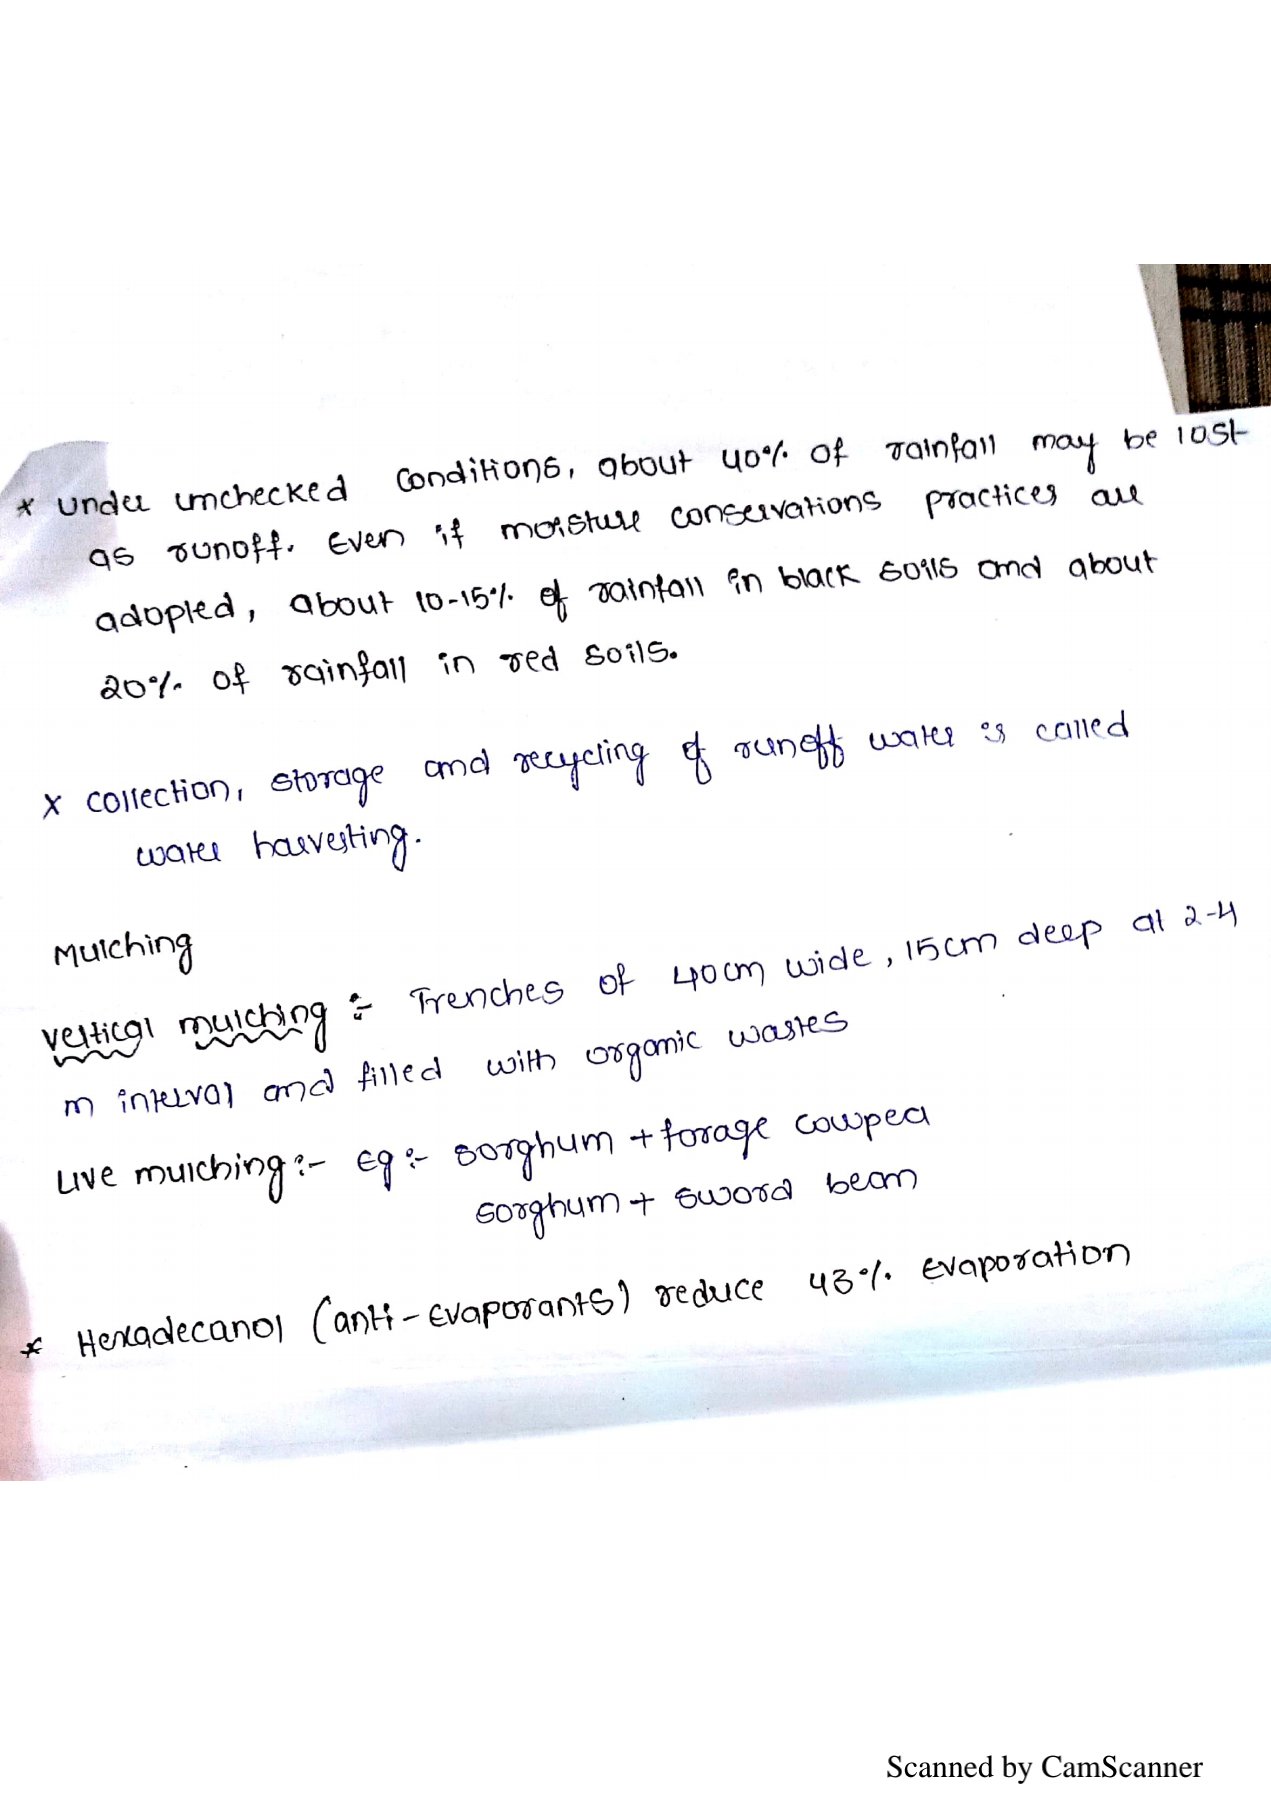 * Under unchecked conditions, about 40% of rainfall may be lost
as runoff. Even if moisture conservations practices are
adopted, about 10-15% of rainfall in black soils and about
20% of rainfall in red soils.
x collection, storage and recycling of runoff water is called
water harvesting.
Mulching
Vertical mulching :- Trenches of 40cm wide, 15cm deep at 2-4
m interval and filled with organic wastes
Live mulching :- Eg :- sorghum + forage cowpea
sorghum + sword bean
* Hexadecanol (anti-Evaporants) reduce 43% Evaporation
Scanned by CamScanner